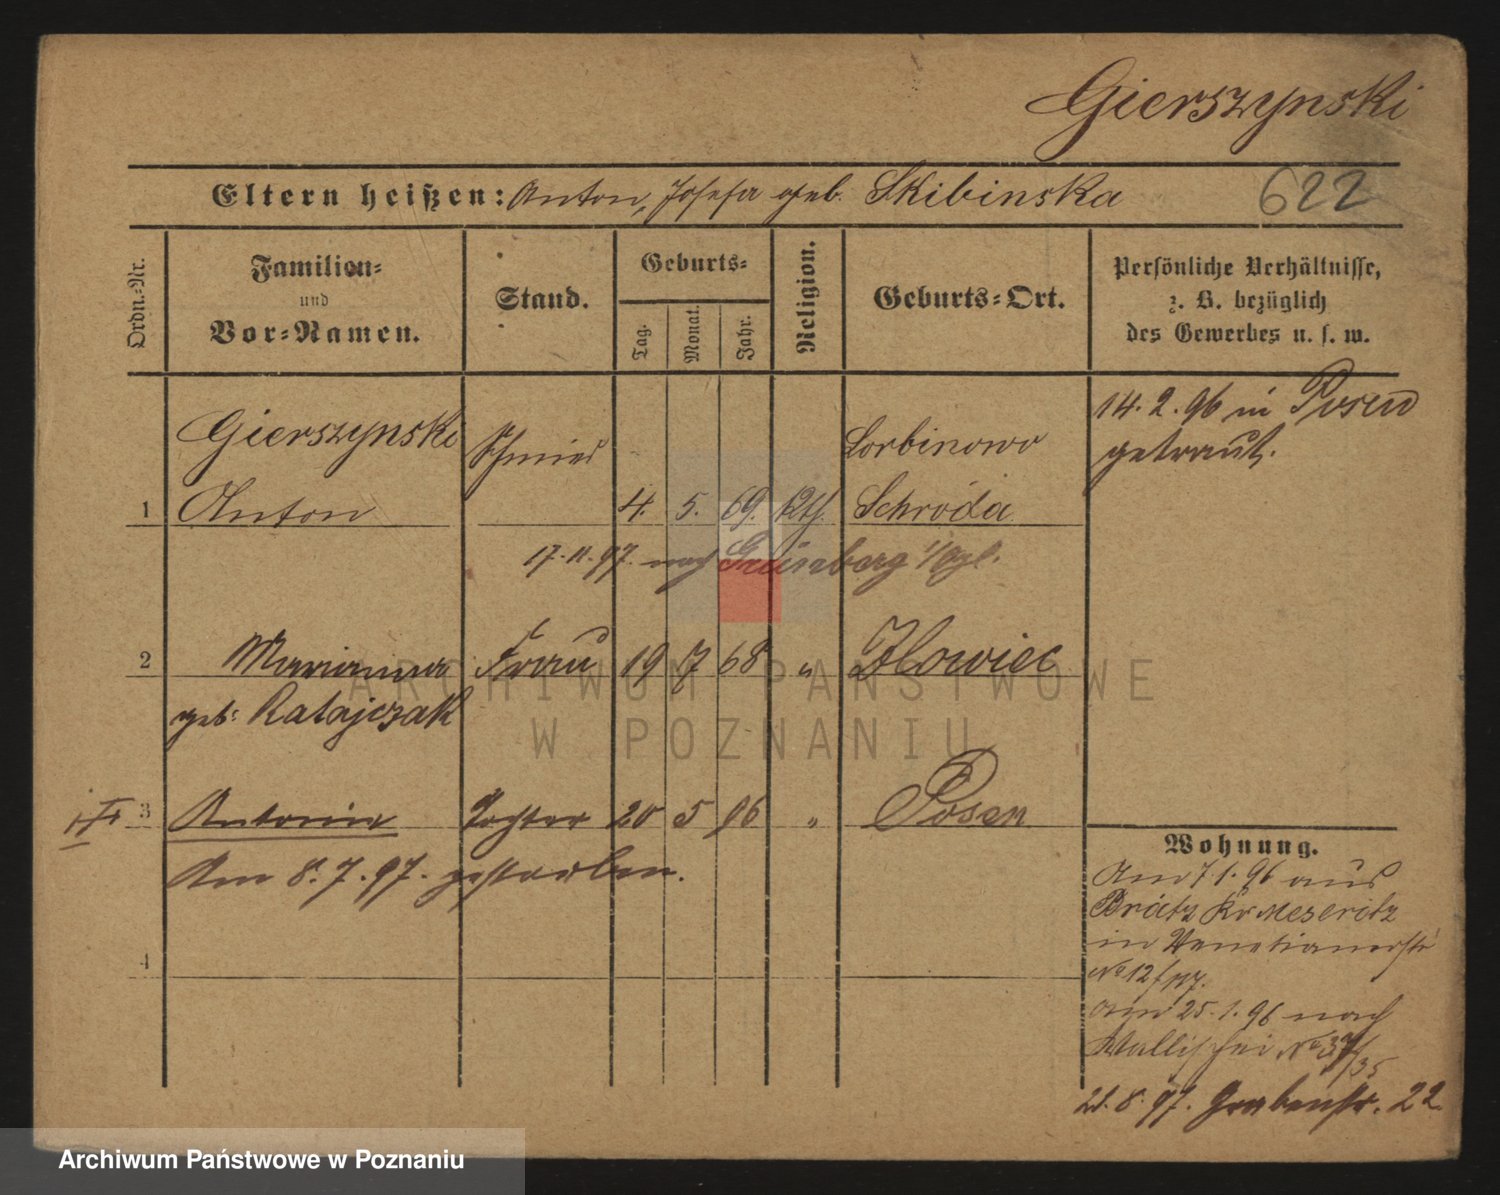 Gierszynski
Eltern heißen: Anton, Josefa geb. Skibinska
622
Ordn.-Nr.
Familien-
und
Vor-Namen.
Stand.
Geburts-
Tag.
Monat.
Jahr.
Religion.
Geburts-Ort.
Persönliche Verhältnisse,
z. B. bezüglich
des Gewerbes u. s. w.
14. 2. 96 in Posen
getraut.
Gierszynski Schmied Lorbinowo
1 Anton 4. 5. 69. Kth. Schroda
17. 11. 97. nach Grünberg
2 Marianna Frau 19 7 68 " Ilowiec
geb. Ratajczak
3 Antonie Tochter 20 5 96 " Posen
Am 8. 7. 97. gestorben.
4
Wohnung.
Am 7. 1. 96 aus
Brätz Kr Meseritz
in Venetianerstr
No 12/
am 25. 1. 96 nach
Wallischei No 37/35
21. 8. 97. Grabenstr. 22
ARCHIWUM PAŃSTWOWE
W POZNANIU
Archiwum Państwowe w Poznaniu